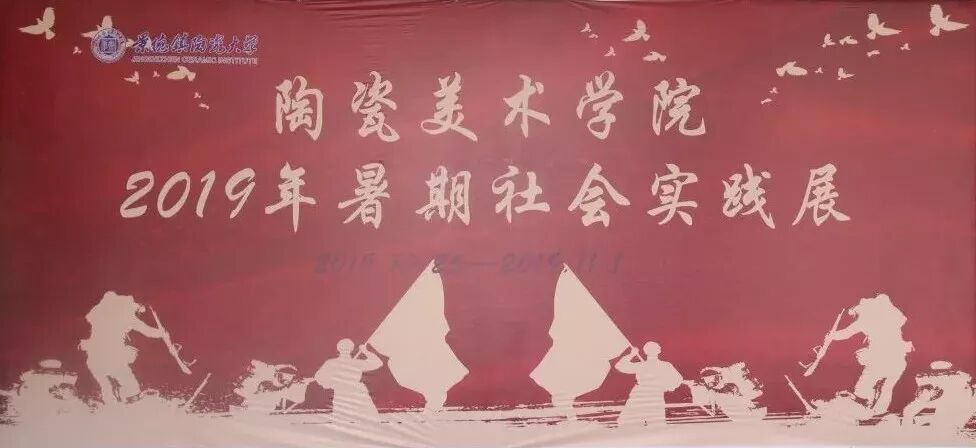 景德镇陶瓷大学
JINGDEZHEN CERAMIC INSTITUTE
陶瓷美术学院
2019年暑期社会实践展